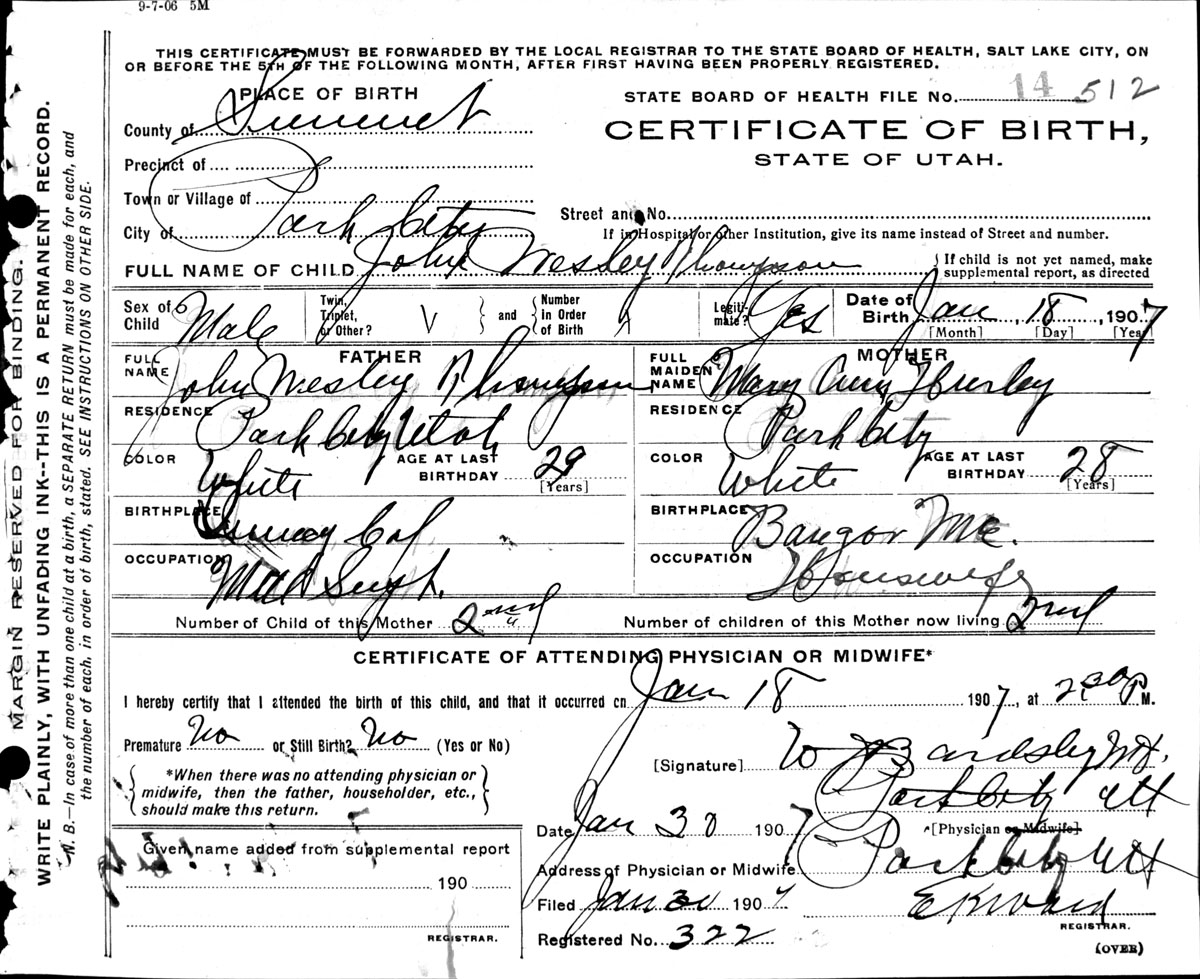 9-7-06 5M
THIS CERTIFICATE MUST BE FORWARDED BY THE LOCAL REGISTRAR TO THE STATE BOARD OF HEALTH, SALT LAKE CITY, ON
OR BEFORE THE 5TH OF THE FOLLOWING MONTH, AFTER FIRST HAVING BEEN PROPERLY REGISTERED.
PLACE OF BIRTH
STATE BOARD OF HEALTH FILE No. 14 512
County of Summit
CERTIFICATE OF BIRTH,
STATE OF UTAH.
Precinct of
Town or Village of
City of Park City
Street and No.
If in Hospital or other Institution, give its name instead of Street and number.
FULL NAME OF CHILD John Wesley Thompson
If child is not yet named, make
supplemental report, as directed
Sex of Child Male
Twin, Triplet, or Other?
and
Number in Order of Birth
Legitimate? Yes
Date of Birth Jan 18, 1907
[Month] [Day] [Year]
FATHER
FULL NAME John Wesley Thompson
RESIDENCE Park City Utah
COLOR White
AGE AT LAST BIRTHDAY 29
[Years]
BIRTHPLACE Cal
OCCUPATION
MOTHER
FULL MAIDEN NAME Mary Ann Hurley
RESIDENCE Park City
COLOR White
AGE AT LAST BIRTHDAY 28
[Years]
BIRTHPLACE Bangor Me.
OCCUPATION Houswife
Number of Child of this Mother 2nd
Number of children of this Mother now living 2nd
CERTIFICATE OF ATTENDING PHYSICIAN OR MIDWIFE*
I hereby certify that I attended the birth of this child, and that it occurred on Jan 18 1907, at 2 30 P M.
Premature No or Still Birth? No (Yes or No)
*When there was no attending physician or
midwife, then the father, householder, etc.,
should make this return.
[Signature] W J Bardsley MD.
Park City Ut
*[Physician or Midwife]
Date Jan 30 1907
Address of Physician or Midwife Park City Ut
Filed Jan 30 1907
E K Ward
REGISTRAR.
Registered No. 322
(OVER)
Given name added from supplemental report
190
REGISTRAR.
MARGIN RESERVED FOR BINDING.
WRITE PLAINLY, WITH UNFADING INK--THIS IS A PERMANENT RECORD.
N. B.—In case of more than one child at a birth, a SEPARATE RETURN must be made for each, and
the number of each, in order of birth, stated. SEE INSTRUCTIONS ON OTHER SIDE.